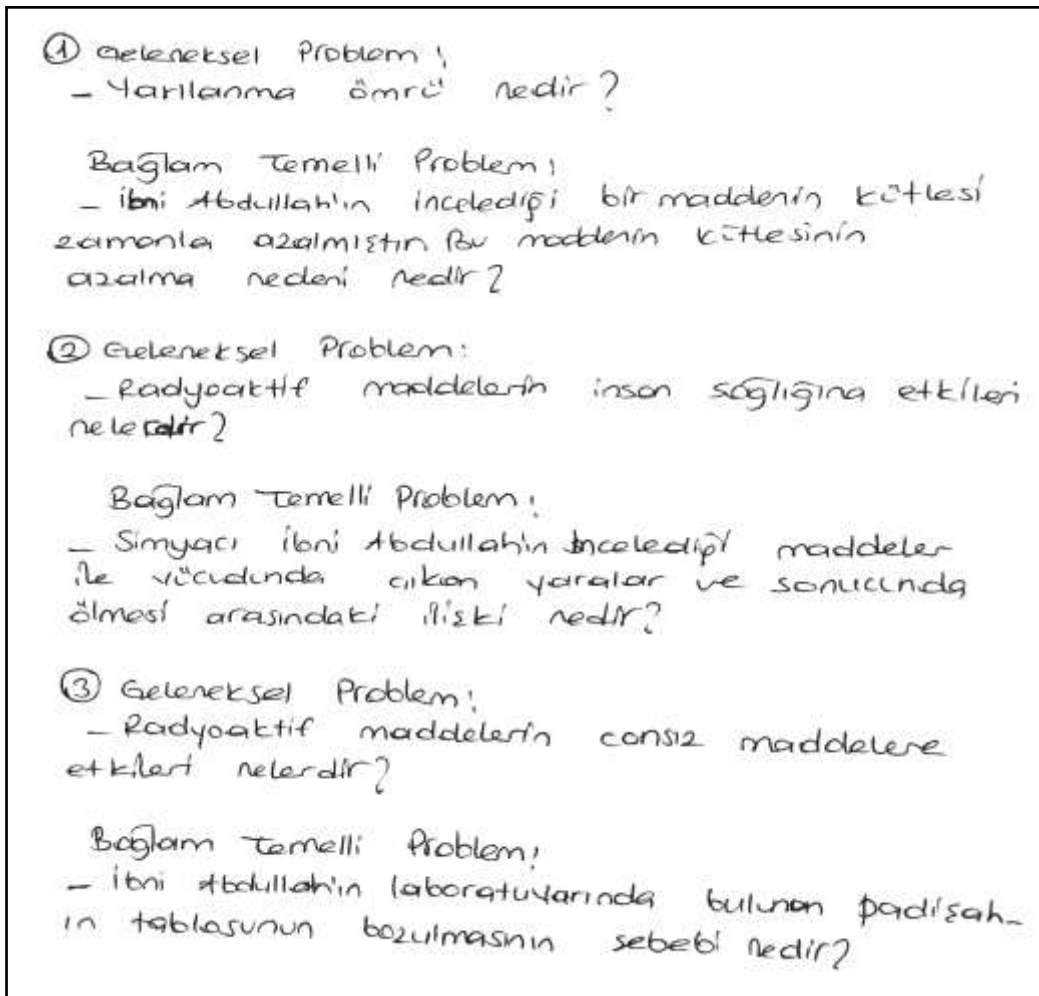 ① Geleneksel Problem:
- Yarılanma ömrü nedir?
Bağlam Temelli Problem:
- İbni Abdullah'ın incelediği bir maddenin kütlesi
zamanla azalmıştır. Bu maddenin kütlesinin
azalma nedeni nedir?
② Geleneksel Problem:
- Radyoaktif maddelerin insan sağlığına etkileri
nelerdir?
Bağlam Temelli Problem:
- Simyacı İbni Abdullah'ın incelediği maddeler
ile vücudunda çıkan yaralar ve sonucunda
ölmesi arasındaki ilişki nedir?
③ Geleneksel Problem:
- Radyoaktif maddelerin cansız maddelere
etkileri nelerdir?
Bağlam Temelli Problem:
- İbni Abdullah'ın laboratuvarında bulunan padişah-
ın tablosunun bozulmasının sebebi nedir?